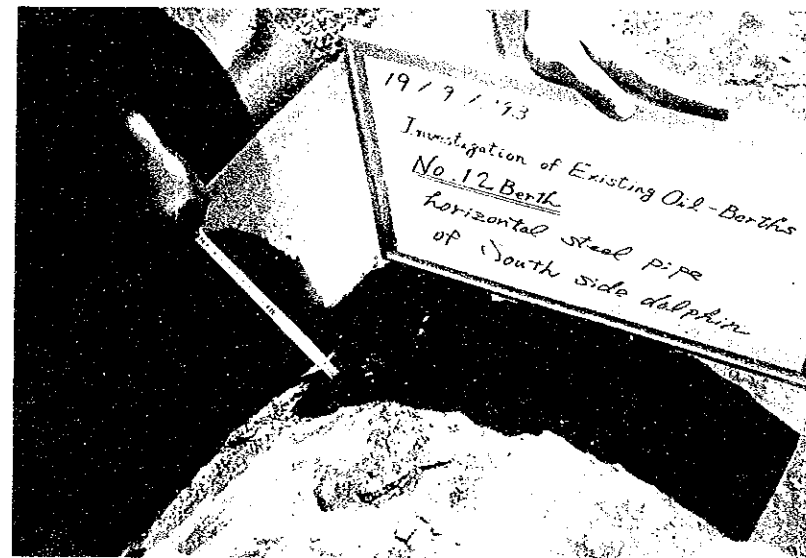 19/9/'93
Investigation of Existing Oil-Berths
No.12 Berth
horizontal steel pipe
of South side dolphin